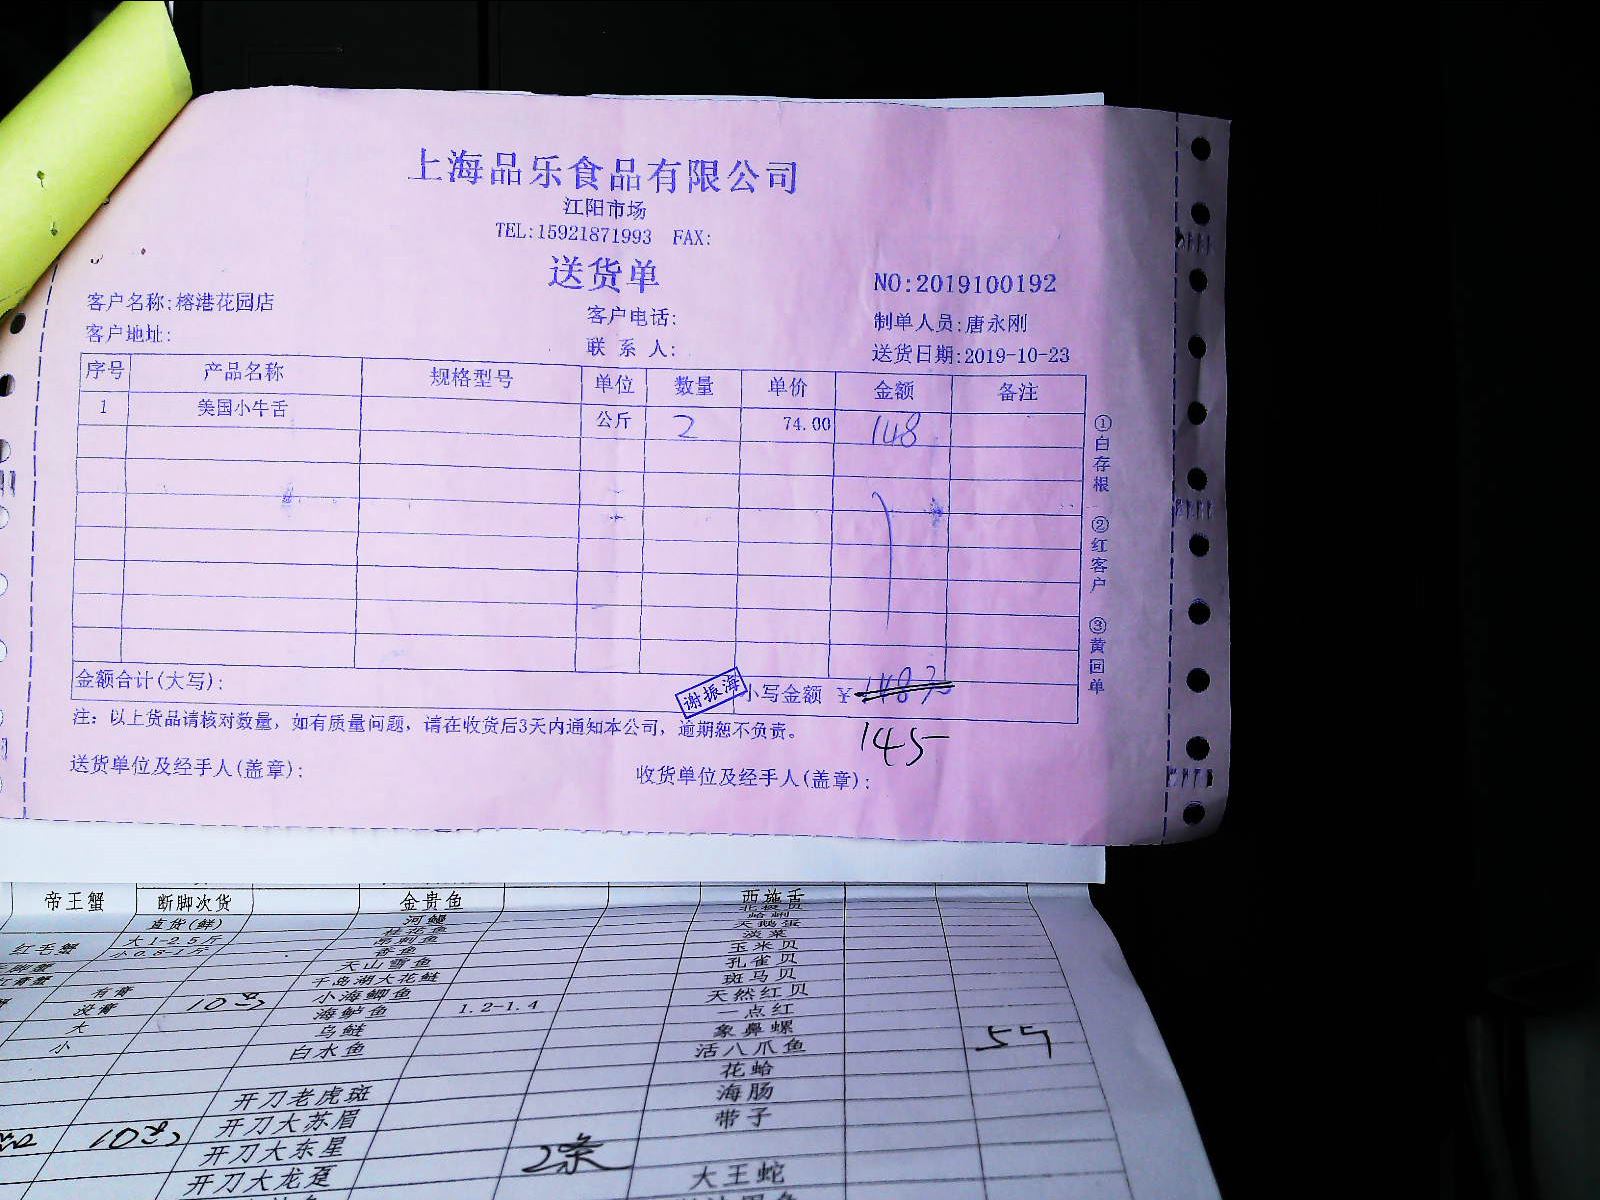 上海品乐食品有限公司
江阳市场
TEL:15921871993 FAX:
送货单
NO:2019100192
客户名称:榕港花园店 客户电话: 制单人员:唐永刚
客户地址: 联 系 人: 送货日期:2019-10-23
序号 产品名称 规格型号 单位 数量 单价 金额 备注
1 美国小牛舌 公斤 2 74.00 148
①白存根 ②红客户 ③黄回单
金额合计(大写): 谢振海 小写金额 ¥
注: 以上货品请核对数量, 如有质量问题, 请在收货后3天内通知本公司, 逾期恕不负责。
145
送货单位及经手人(盖章): 收货单位及经手人(盖章):
帝王蟹 断脚次货 金贵鱼 西施舌
直货(鲜) 河鳗
红毛蟹 大1-2.5斤 桂花鱼 天鹅蛋
小0.8-1斤 淡菜
香鱼 玉米贝
天山雪鱼 孔雀贝
有膏 千岛湖大花鲢 斑马贝
没膏 小海鲫鱼 天然红贝
大 海鲈鱼 1.2-1.4 一点红
小 乌鲢 象鼻螺
白水鱼 活八爪鱼
花蛤
开刀老虎斑 海肠
开刀大苏眉 带子
开刀大东星 2条
开刀大龙趸 大王蛇